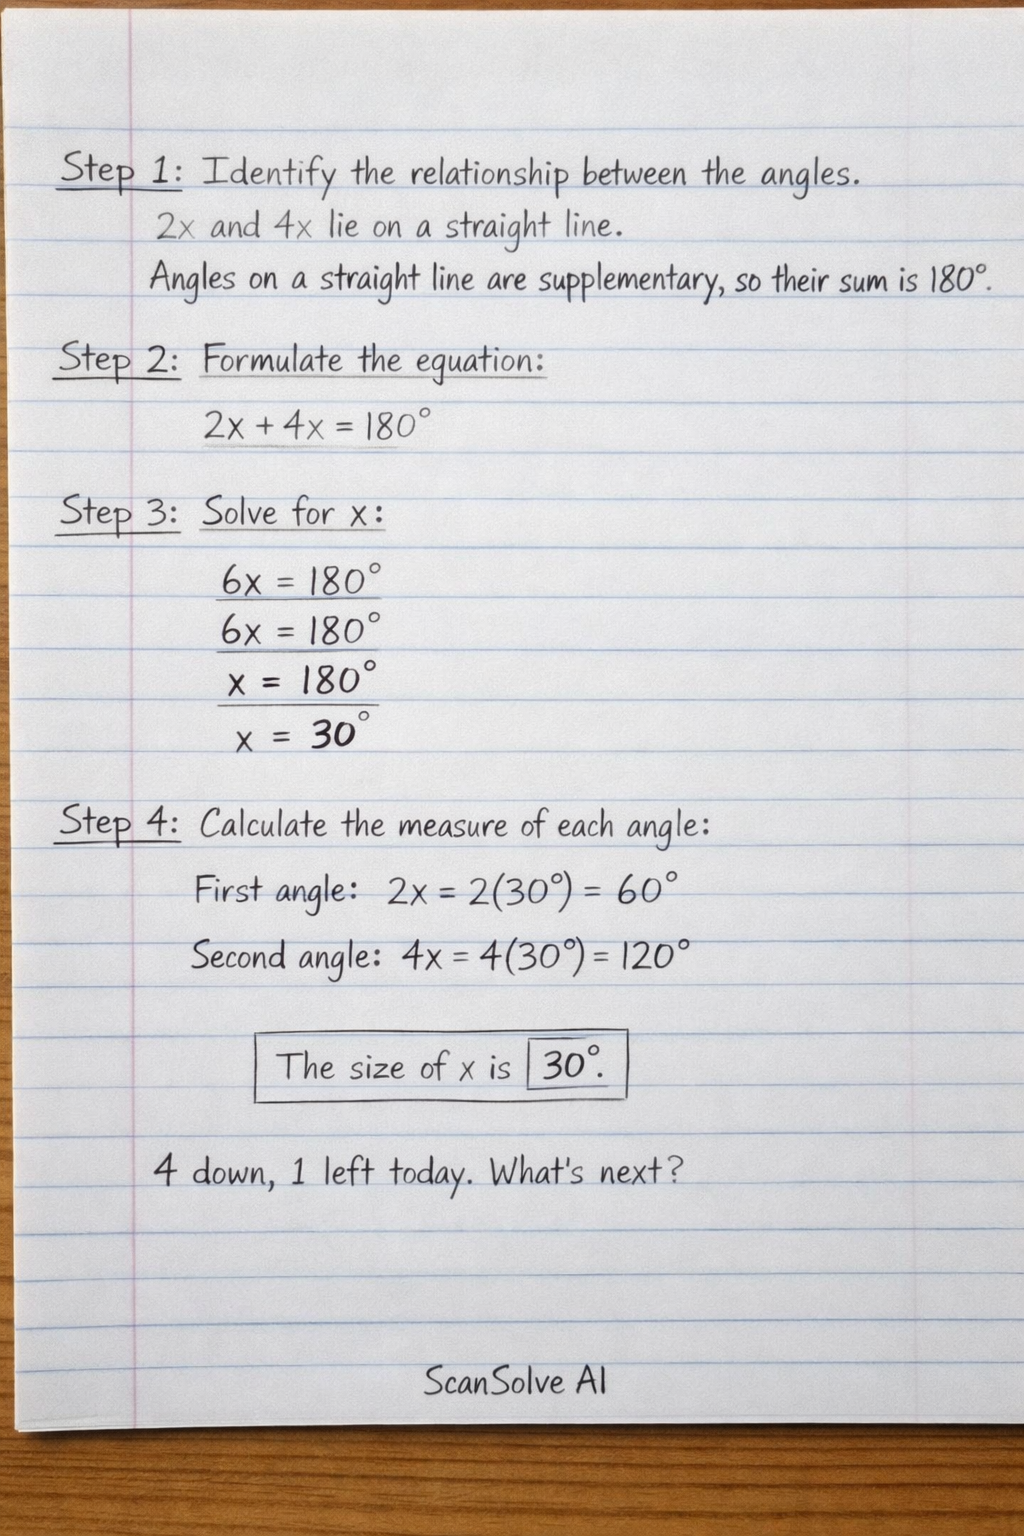 Step 1: Identify the relationship between the angles.
2x and 4x lie on a straight line.
Angles on a straight line are supplementary, so their sum is 180°.
Step 2: Formulate the equation:
2x + 4x = 180°
Step 3: Solve for x:
6x = 180°
6x = 180°
x = 180°
x = 30°
Step 4: Calculate the measure of each angle:
First angle: 2x = 2(30°) = 60°
Second angle: 4x = 4(30°) = 120°
The size of x is 30°.
4 down, 1 left today. What's next?
ScanSolve AI